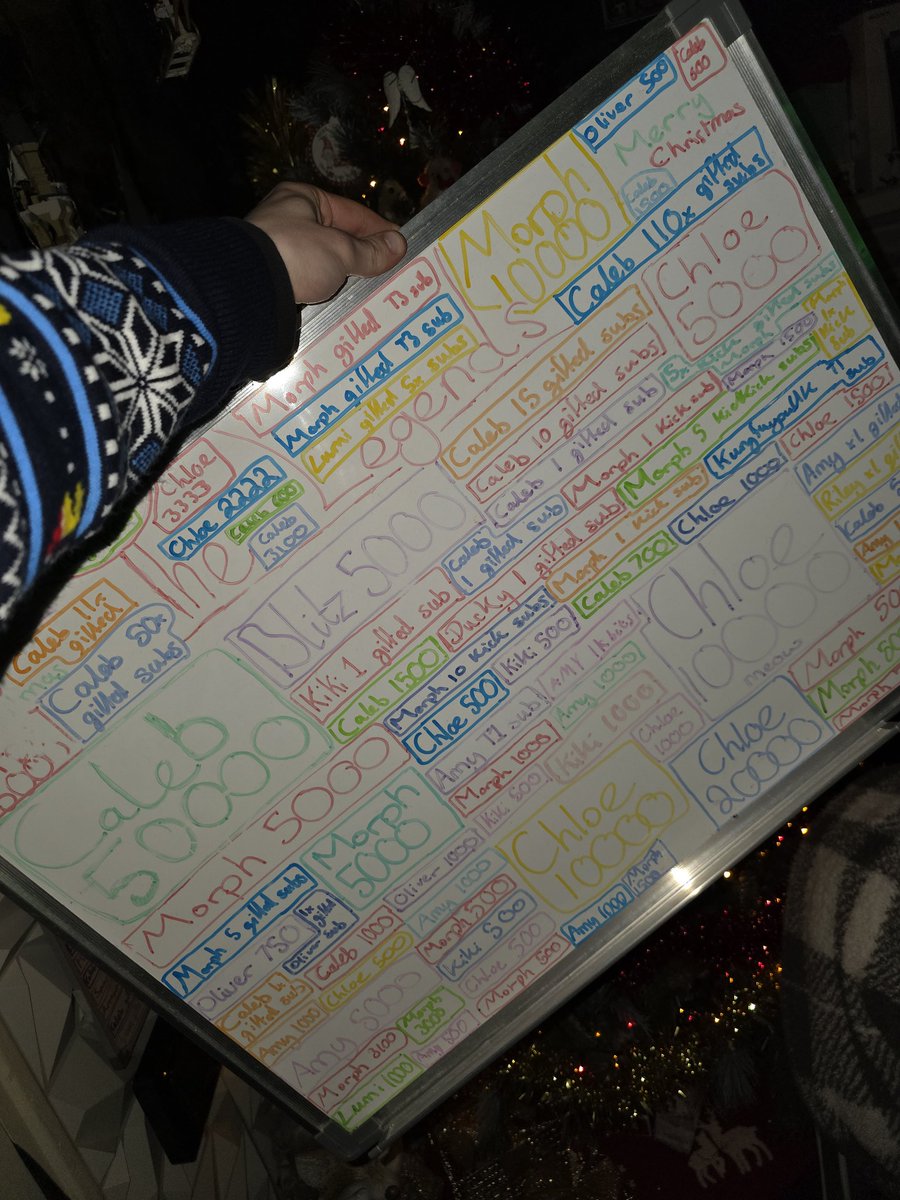 Caleb
500
Oliver 500
Merry
Christmas
Morph
10000
Caleb 110x gifted
subs
Chloe
5000
Morph gifted T3 sub
Morph gifted T3 sub
Lumi gifted 5x subs
The Legends
Caleb 15 gifted subs
Caleb 10 gifted subs
Caleb 1 gifted sub
5x kick gifted subs
Morph
Morph 1500
Morph
1x
kick
sub
Morph 1 kick sub
Morph 5 kick subs
T1
sub
Chloe 1500
Chloe
3333
Chloe 2222
Caleb
3100
Blitz 5000
Caleb
1 gifted sub
Ducky 1 gifted sub
Morph 1 kick sub
Chloe 1000
Amy x1 gifted
Riley x1 gi
Caleb
Amy
Kiki 1 gifted sub
Caleb 1500
Morph 10 kick subs
Caleb 700
Kiki 500
Chloe 500
Chloe
100000
meows
Caleb 11x
gifted
Caleb 50x
gifted subs
Caleb
50000
Morph 5000
Amy T1 sub
Amy 1000
Morph 1000
Kiki 1000
Kiki 500
Chloe
1000
Chloe
20000
Morph 50
Morph 50
Morph
Morph
5000
Chloe
10000
Morph 5 gifted subs
Oliver 750
1x
gifted
sub
Oliver
Oliver 1000
Caleb 1000
Amy 1000
Morph 500
Kiki 500
Chloe 500
Morph 500
Amy 1000
Morph
1500
Caleb 1x
gifted sub
Chloe 500
Amy 1000
Amy 5000
Morph 2100
Morph
3500
Amy 500
Lumi 1000